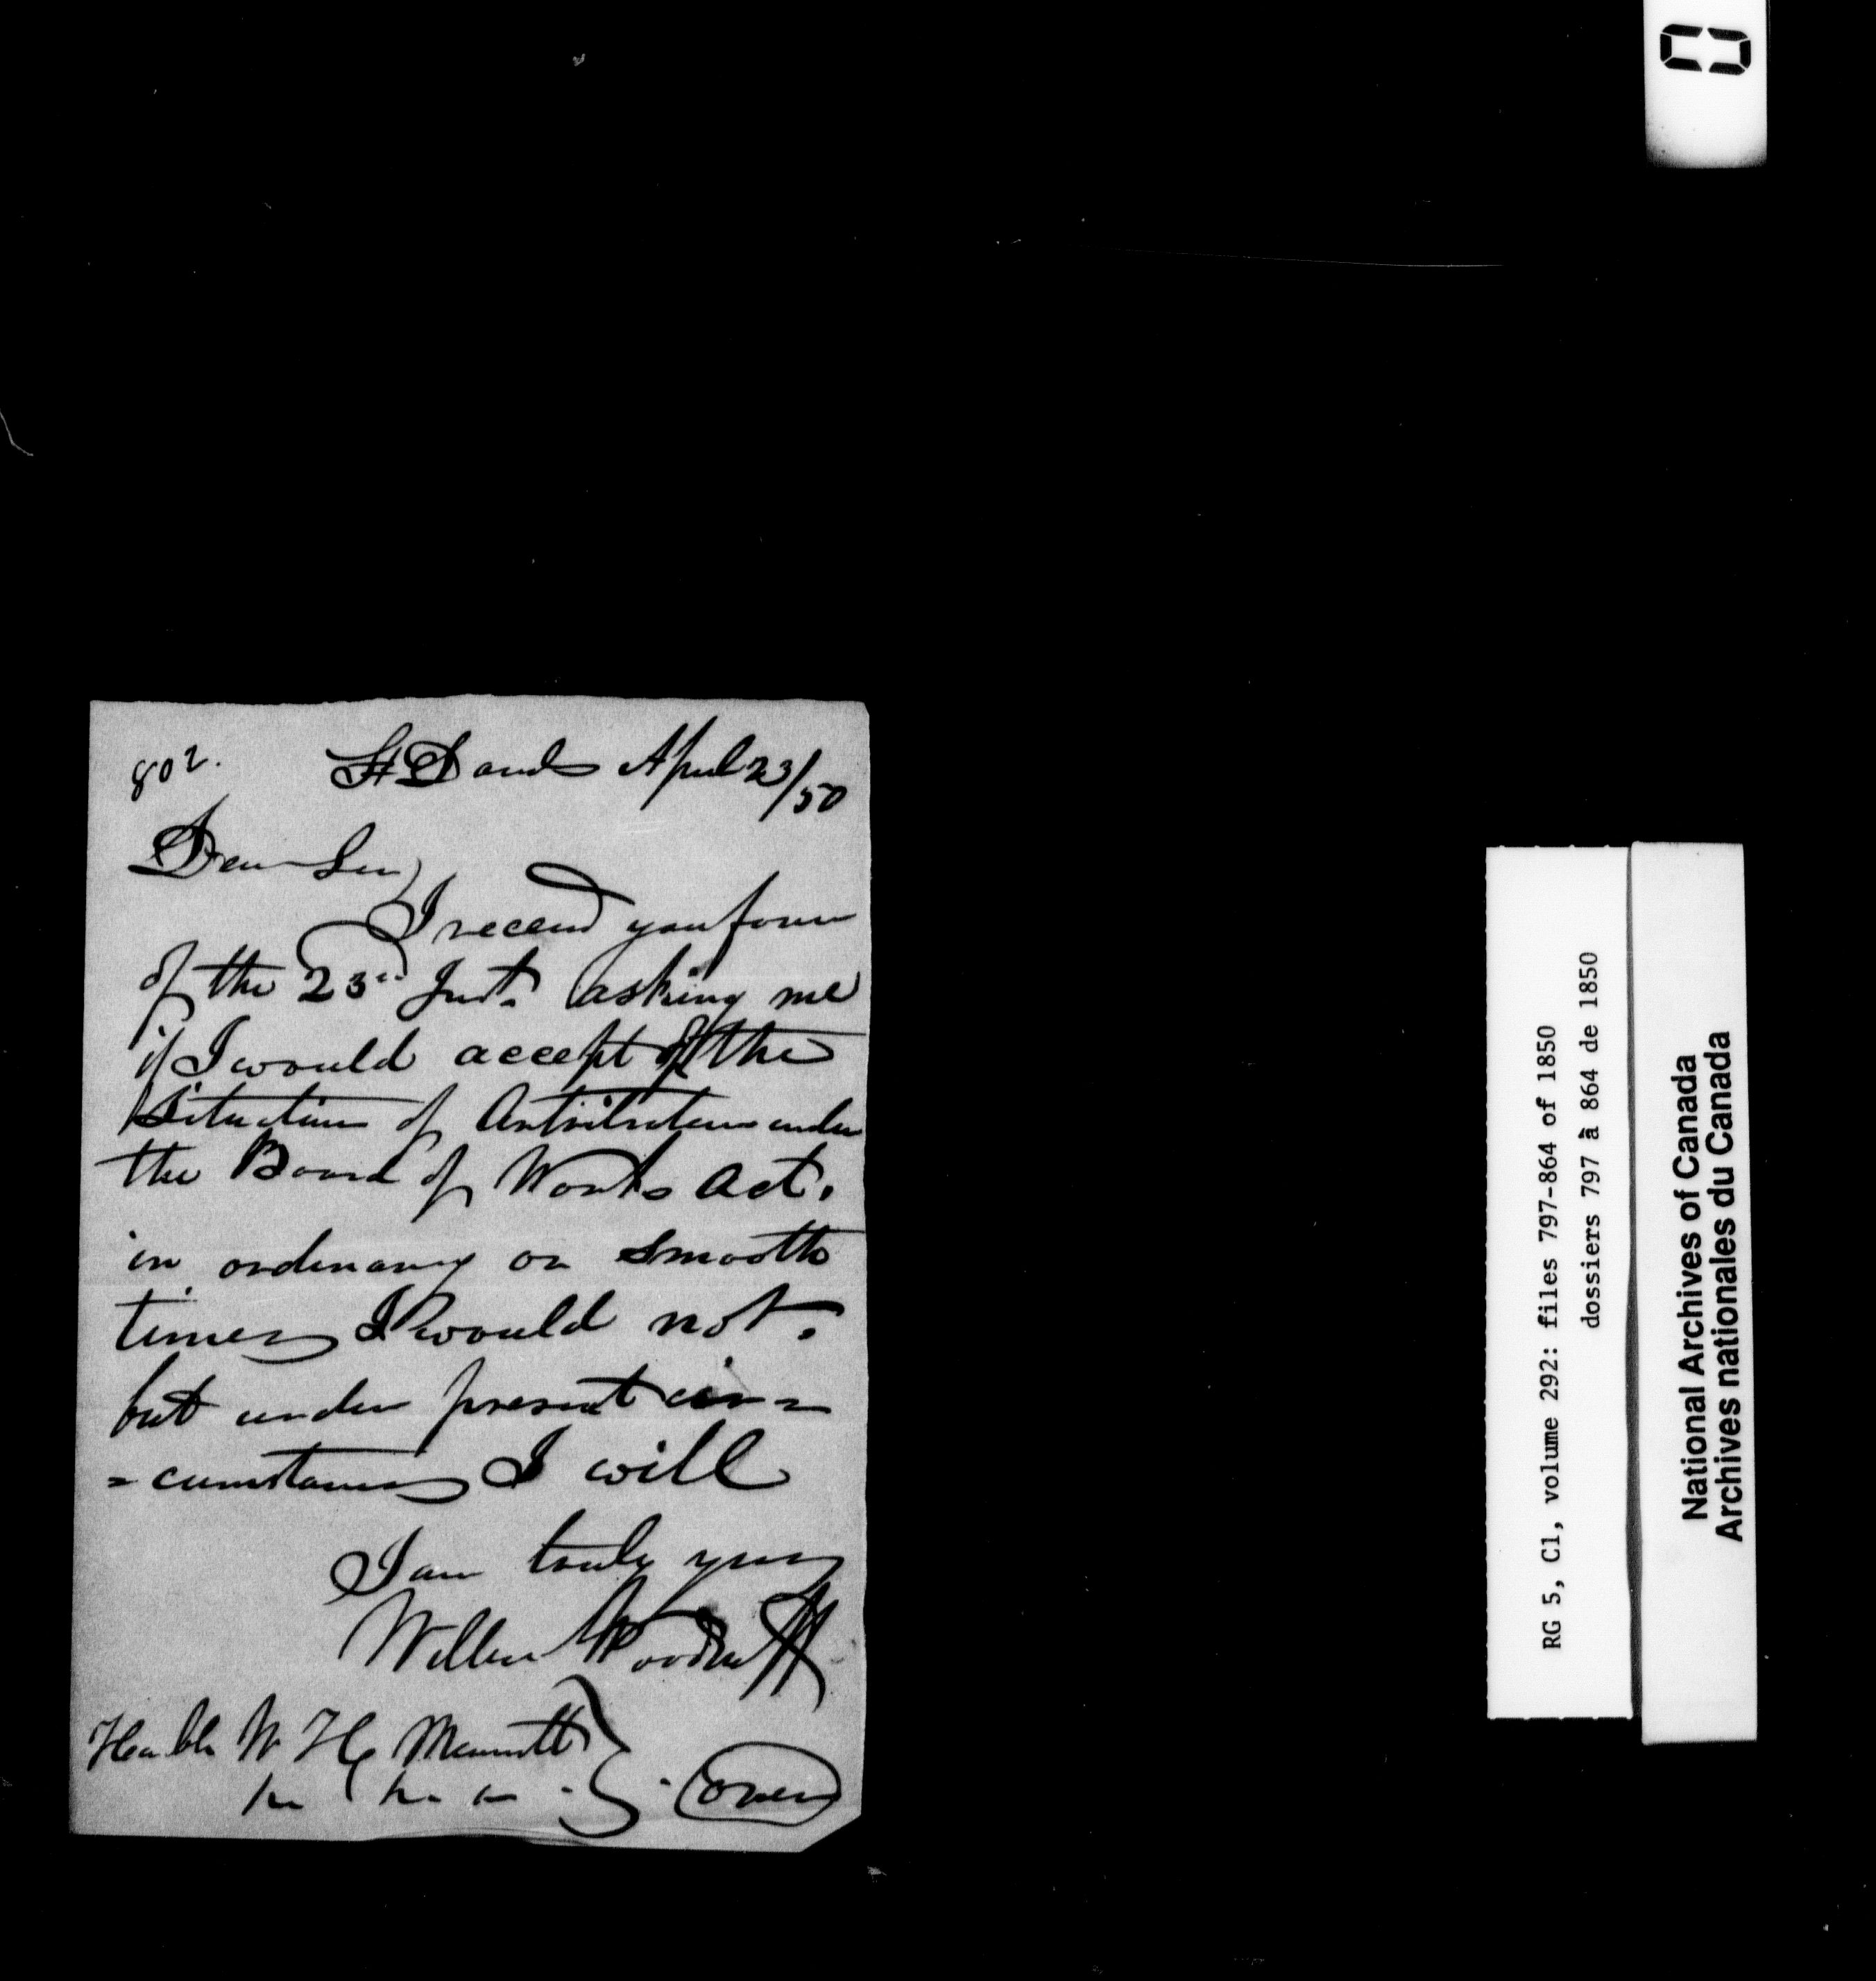 802.
St Davids April 23/50
Dear Sir,
I receivd your favour
of the 23rd Inst. asking me
if I would accept of the
situation of Arbitrator under
the Board of Works Act.
in ordinary or smooth
times I would not.
but under present cir=
=cumstances I will
I am truly yours
William Woodruff
Honble W H Merritt
(over)
RG 5, C1, volume 292: files 797-864 of 1850
dossiers 797 à 864 de 1850
National Archives of Canada
Archives nationales du Canada